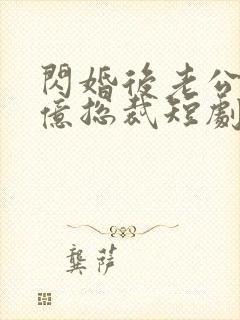 閃婚後老公
億捴裁短劇
龔萨